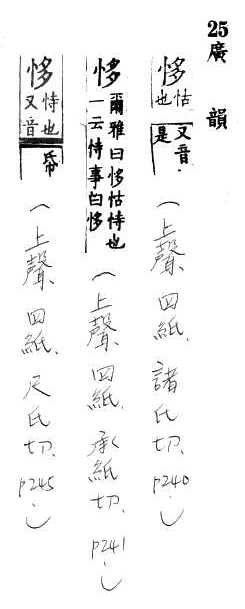 25廣韻
恀怙也又音是(上聲、四紙、諸氏切、p240。)
恀爾雅曰恀怙恃也一云恃事曰恀(上聲、四紙、承紙切、p241。)
恀恃也又音(上聲、四紙、尺氏切、p245。)